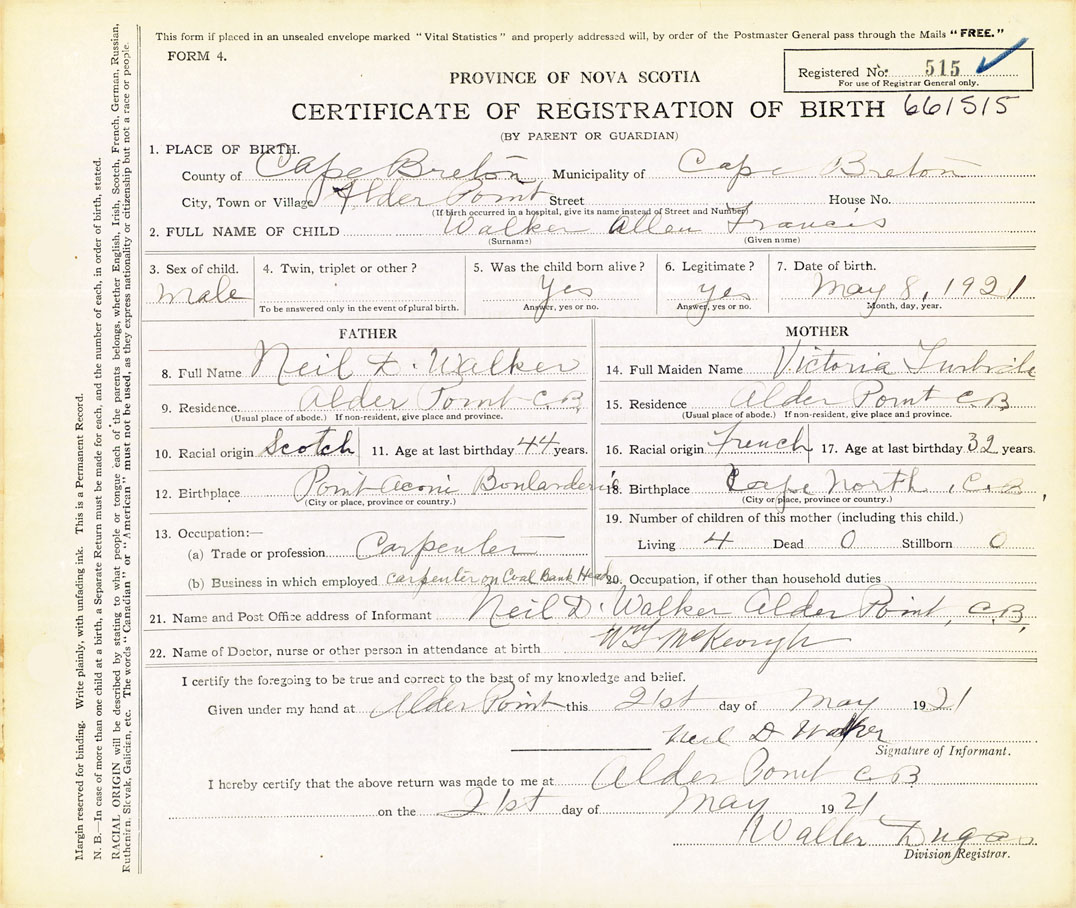 This form if placed in an unsealed envelope marked "Vital Statistics" and properly addressed will, by order of the Postmaster General pass through the Mails "FREE."
FORM 4.
Registered No. 515
For use of Registrar General only.
PROVINCE OF NOVA SCOTIA
CERTIFICATE OF REGISTRATION OF BIRTH 661515
(BY PARENT OR GUARDIAN)
1. PLACE OF BIRTH.
County of Cape Breton Municipality of Cape Breton
City, Town or Village Alder Point Street House No.
(If birth occurred in a hospital, give its name instead of Street and Number)
2. FULL NAME OF CHILD Walker Allen Francis
(Surname) (Given name)
3. Sex of child. 4. Twin, triplet or other? 5. Was the child born alive? 6. Legitimate? 7. Date of birth.
male yes yes May 8, 1921
To be answered only in the event of plural birth. Answer, yes or no. Answer, yes or no. Month, day, year.
FATHER
8. Full Name Neil D. Walker
9. Residence. Alder Point C.B.
(Usual place of abode.) If non-resident, give place and province.
10. Racial origin Scotch 11. Age at last birthday 44 years.
12. Birthplace Point Aconi Boularderie
(City or place, province or country.)
13. Occupation:—
(a) Trade or profession Carpenter
(b) Business in which employed carpenter on Coal Bank Head
MOTHER
14. Full Maiden Name Victoria
15. Residence Alder Point C.B
(Usual place of abode.) If non-resident, give place and province.
16. Racial origin French 17. Age at last birthday 32 years.
18. Birthplace Cape North, C.B,
(City or place, province or country.)
19. Number of children of this mother (including this child.)
Living 4 Dead 0 Stillborn 0
20. Occupation, if other than household duties
21. Name and Post Office address of Informant Neil D. Walker Alder Point, C.B,
22. Name of Doctor, nurse or other person in attendance at birth McKeough
I certify the foregoing to be true and correct to the best of my knowledge and belief.
Given under my hand at Alder Point this 21st day of May 1921
Neil D Walker
Signature of Informant.
I hereby certify that the above return was made to me at Alder Point C.B
on the 21st day of May 1921
Walter Dugan
Division Registrar.
Margin reserved for binding. Write plainly, with unfading ink. This is a Permanent Record.
N. B.—In case of more than one child at a birth, a Separate Return must be made for each, and the number of each, in order of birth, stated.
RACIAL ORIGIN will be described by stating to what people or tongue each of the parents belongs, whether English, Irish, Scotch, French, German, Russian,
Ruthenian, Slovak, Galician, etc. The words "Canadian" or "American" must not be used, as they express nationality or citizenship but not a race or people.